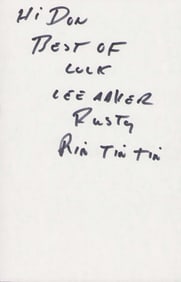 Hi Don
Best of
Luck
Lee Aaker
Rusty
Rin Tin Tin